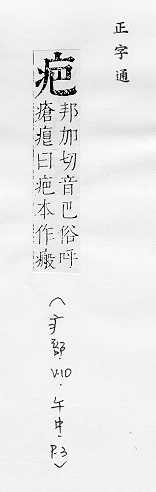 正字通
疤
邦加切音巴俗呼
瘡痕曰疤本作瘢
(疒部.V10.午中.P.3)